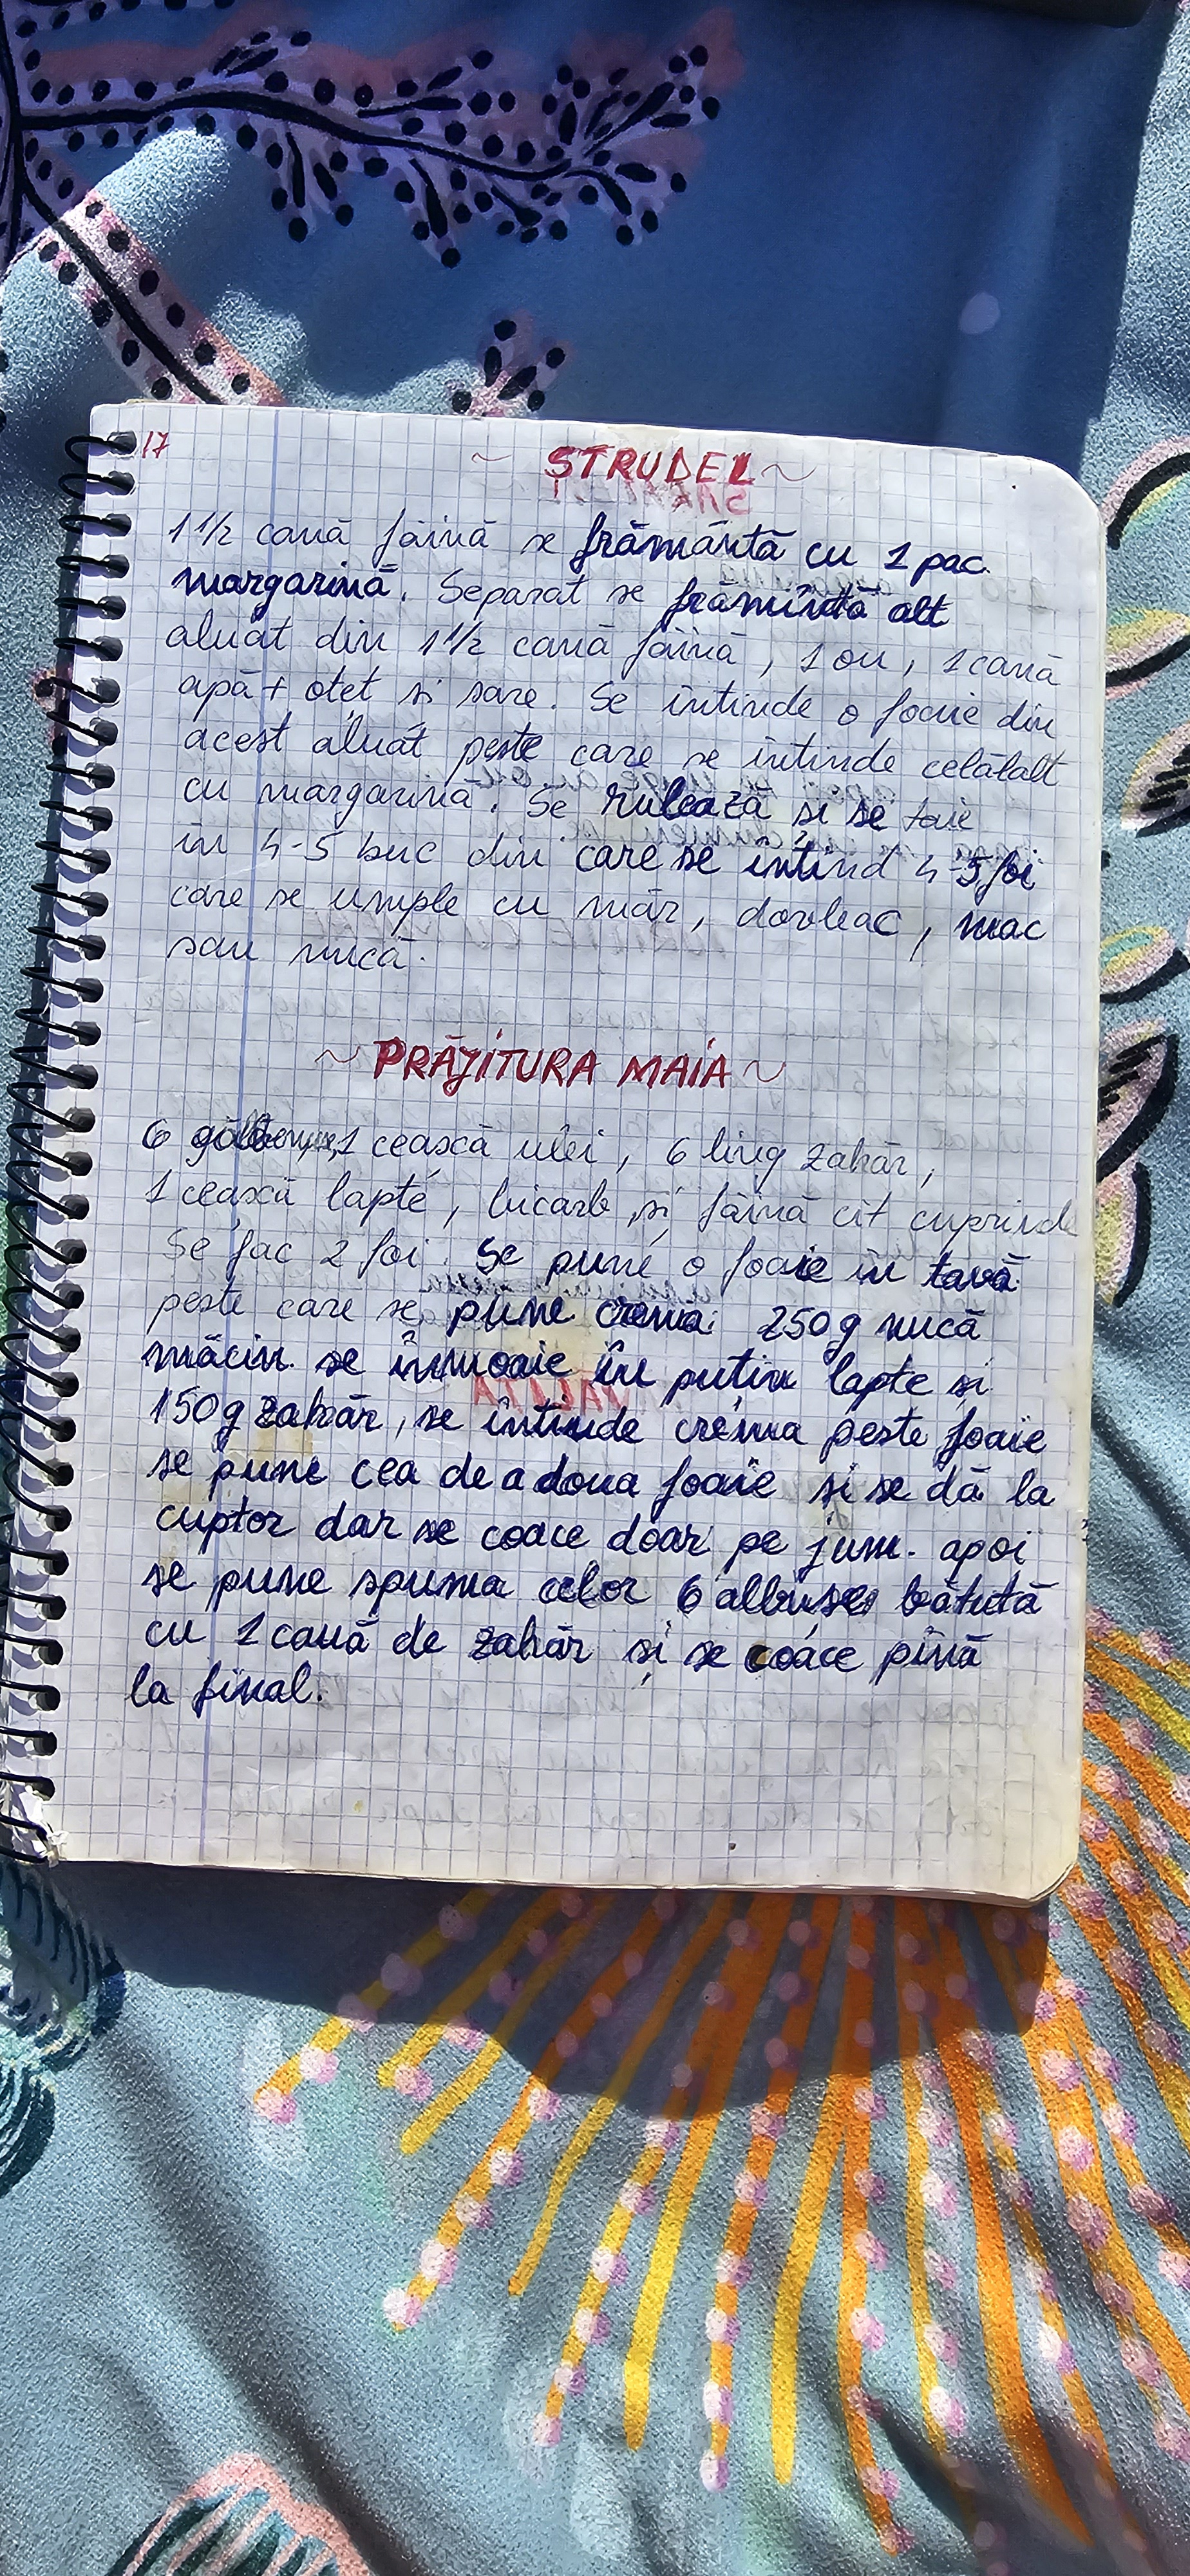 17
~ STRUDEL ~
1 1/2 cană făină se frământă cu 1 pac.
margarină. Separat se frămîntă alt
aluat din 1 1/2 cană făină, 1 ou, 1 cană
apă + oțet și sare. Se intinde o foaie din
acest aluat peste care se întinde celălalt
cu margarină. Se rulează și se taie
în 4-5 buc din care se întind 4-5 foi
care se umple cu măr, dovleac, mac
sau nucă.
~ PRĂJITURA MAIA ~
6 1 ceașcă ulei, 6 ling zahăr,
1 ceașcă lapte, bicarb și făină cît cuprinde
Se fac 2 foi. Se pune o foaie în tavă
peste care se pune crema: 250g nucă
măcin. se înmoaie în puțin lapte și
150g zahăr, se întinde crema peste foaie
se pune cea de a doua foaie și se dă la
cuptor dar se coace doar pe jum. apoi
se pune spuma celor 6 albușe bătută
cu 1 cană de zahăr și se coace pînă
la final.